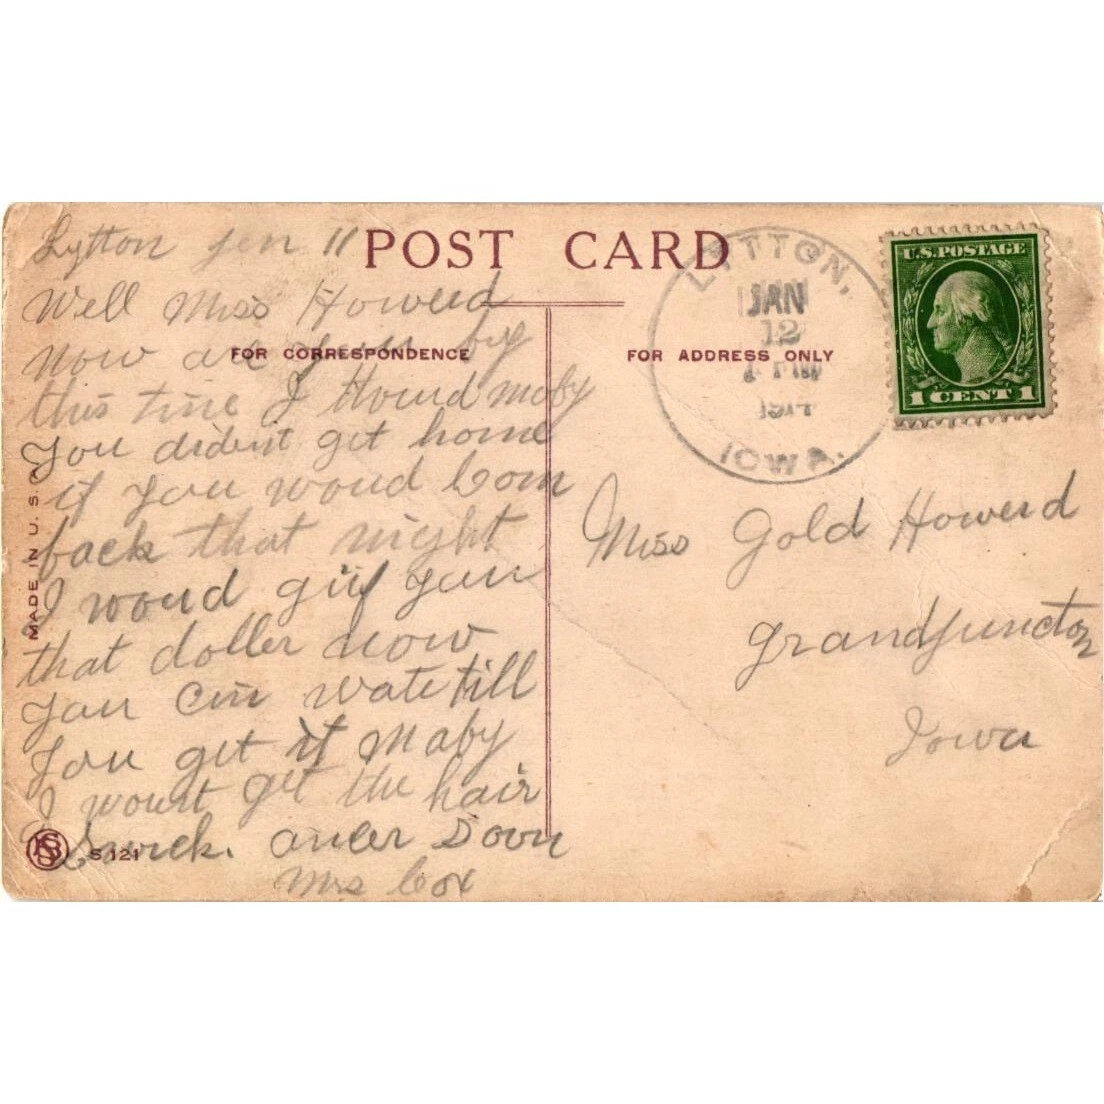 Lytton Jen 11
POST CARD
Well Miss Howerd
FOR CORRESPONDENCE
now are you by
this time I Hourd maby
You dident get home
if you woud Com
back that night
I woud gif you
that doller now
you Cin wate till
You get it Maby
I wount get the hair
Swick. anser Soon
Mrs Cox
MADE IN U. S. A.
KS
S 121
FOR ADDRESS ONLY
LYTTON,
JAN
12
PM
1914
IOWA.
U.S. POSTAGE
1 CENT 1
Miss Gold Howerd
Grandjuncton
Iowa